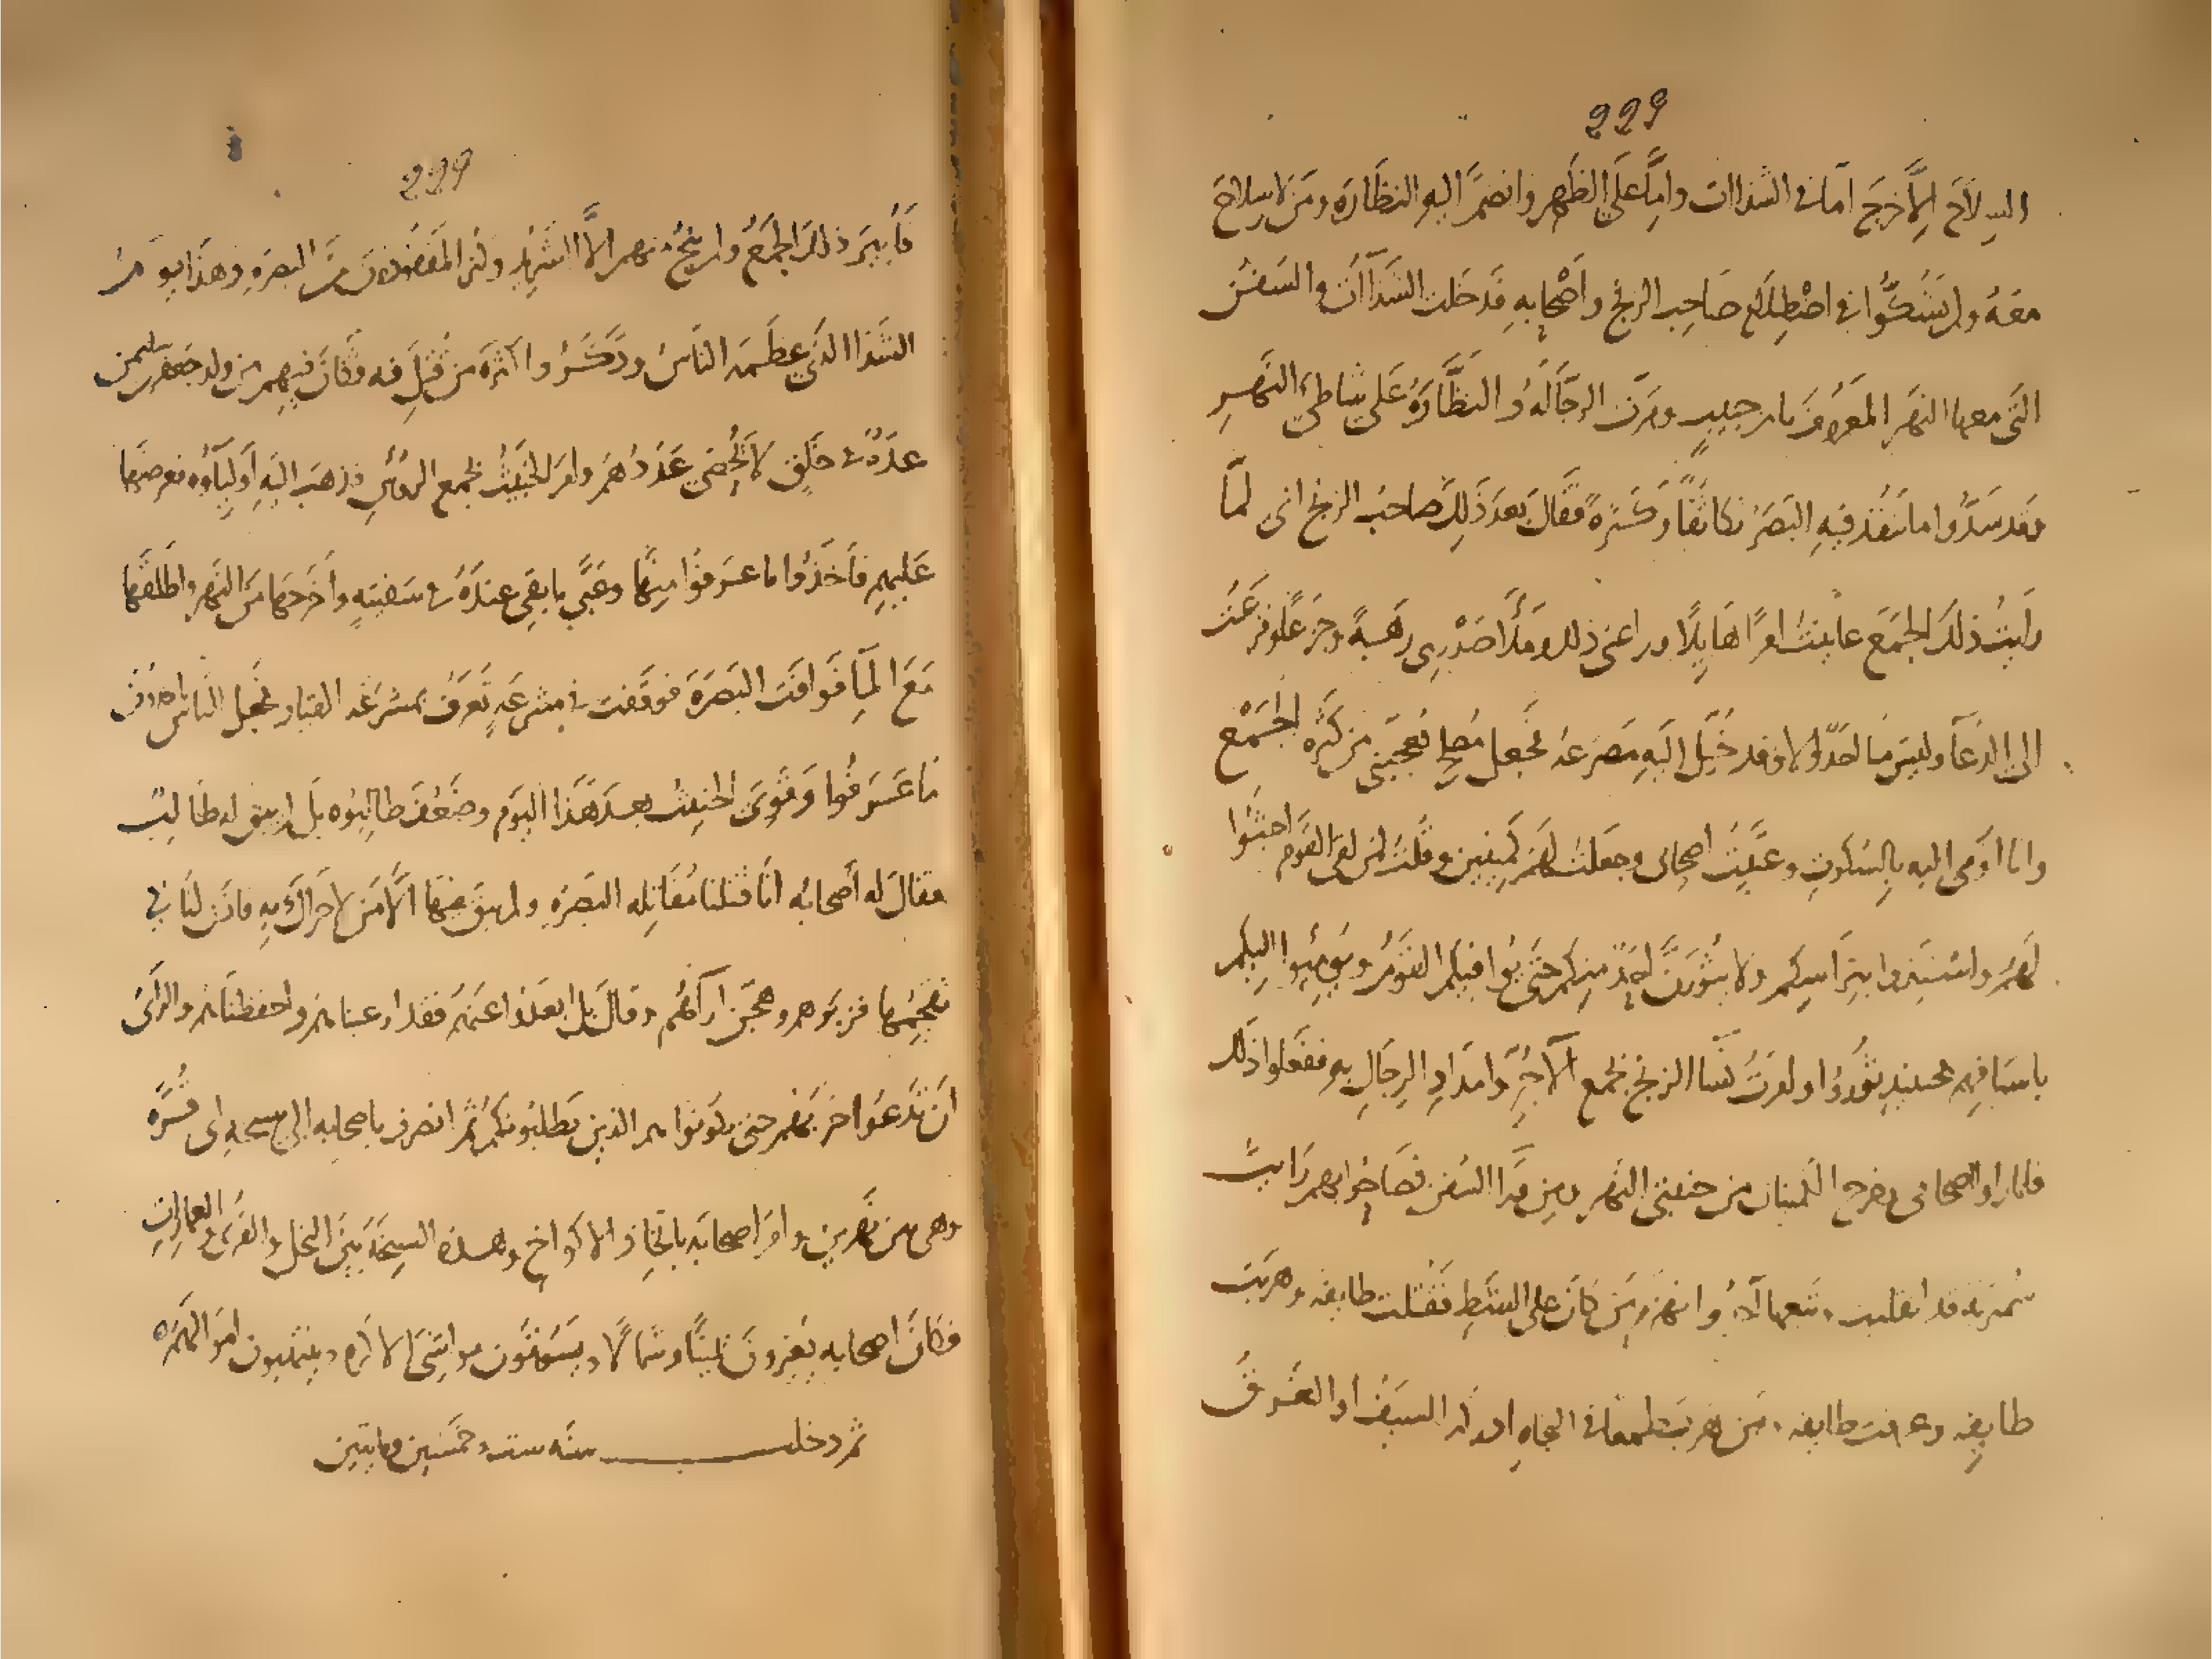 229
السِلاَحَ اِلاَّ خرَجَ امّا فى الشذاات وامِّا علَى الظَهر وانضمَّ اليه النظّارَة ومَن لا سِلاحَ
معَهُ ولم يَشُكّوا فى اصْطِلام صَاحِب الزنج واَصْحابِهِ فدَخلت الشذاآت والسفن
التى معها النهَر المعرُوفَ بام حبيبٍ ومرّت الرجّالَةُ والنظّارَةُ عَلى شاطئ النَهرِ
وقد سَدُّوا ما ينفُذ فيهِ البَصَرُ تكاثفًا وكَثرةً فقالَ بعدَ ذَلِكَ صاحبُ الزنج انى لمّا
رايتُ ذلكَ الجمَع عاينتُ امرًا هَايلًا وراعنى ذلك ومَلأَ صَدْرِى رهبةً وجزعًا وفزعتُ
الى الدُعآ وليسَ منا احَدٌ الا وقد خُيِّلَ اليهِ مَصرَعهُ فجعل مُصلِح يُعجّبنى من كَثرة الجَمْع
وانا اومى اليه بِالسُكوتِ وعبَّيتُ اصحابى وجعَلتُ لهُم كمينين وقُلتُ لمن لقى القَوم اجثُوا
لهُمْ واستَتِروا بتِرَاسِكم ولا يثُورَنَّ احَدٌ مِنكم حتَّى يُوافيكم القَومُ ويُومِئوا اليكم
باسيَافِهم فحينئذٍ ثُورُوا وامَرتُ نسَا الزنج بجمع الآجُرِّ وامدَادِ الرِجَالِ به ففعَلوا ذلك
فلما راوا اصحابى وخرج الكمينان من جنبتى النَهر ومِن ورَآ السُفن فصَاحُوا بهم رَايتُ
سُمَيريّة قد انقلبت وتبعها آخَرُ وانهزم من كانَ على الشَطِ فقُتلت طايفه وهرَبت
طايفه وغرقت طايفه ومَن هرَب طمعًا فى النجاهِ ادرَكه السَيفُ او الغَرقُ
229
فأُبيرَ ذلكَ الجمعُ ولم ينجُ منهم الاَّ الشَرِيدُ وكثر المفقُودُونَ منَ البصَرَةِ وهذَا يومُ
الشذا الذى عظّمه الناسُ وذكَرُوا كثرَة مَن قُتِلَ فيه فكانَ فيهم من ولد جَعفر بن سليمن
عدّة فى خَلقٍ لا يُحصَى عَدَدُهُم وامَر الخبيثُ بجمع الرؤس فذهبَ اليهِ اَوليَآؤُه فعرضَها
عَليهم فاَخَذُوا ما عرَفوُا منِها وعَبَّى ما بقِى عندَهُ فى سَفينهٍ واَخرَجهَا من النَهر واطلَقَها
مَعَ المآِ فوَافَت البَصَرَة فوقَفت فى مشرعَةٍ تُعرَفُ بمشرَعَة القيار فجعل النَاس ياخذون
مَا عَرفُوا وَقَوِىَ الخبيثُ بعدَ هَذا اليَوم وضَعُف طالِبُوه بَل لم يبق له طَالِبٌ
فقالَ له اَصحابُه انّا قتلنا مُقَاتِله البَصَرَه ولم يبقَ فيهَا الّا مَن لا حرَاكَ بِه فاذَن لنَا فى
تقحّمِها فزبرَهم وهجّن ارآءَهُم وقالَ بَل ابعدُوا عَنهم فقد ارعبناهم واحفظناهم والراَىُ
ان تَدعُوا حربَهم حتى يكونوُا هم الذين يَطلبُونكم ثُم انصرف باصحابه الى سبخه اى قُرّه
وهى من نَهرَين وامَر اصحابَه باتّخاذ الاكواخ وهذه السبخة بَينَ النخل والقُرَى والعمارات
فكَانَ اصحابه يُغيرونَ يَمينًا وشمالًا ويَسوقُون مواشى الاكره وينتهبون اموَالهم
ثم دخلت سنه ست وخمَسين وماتين